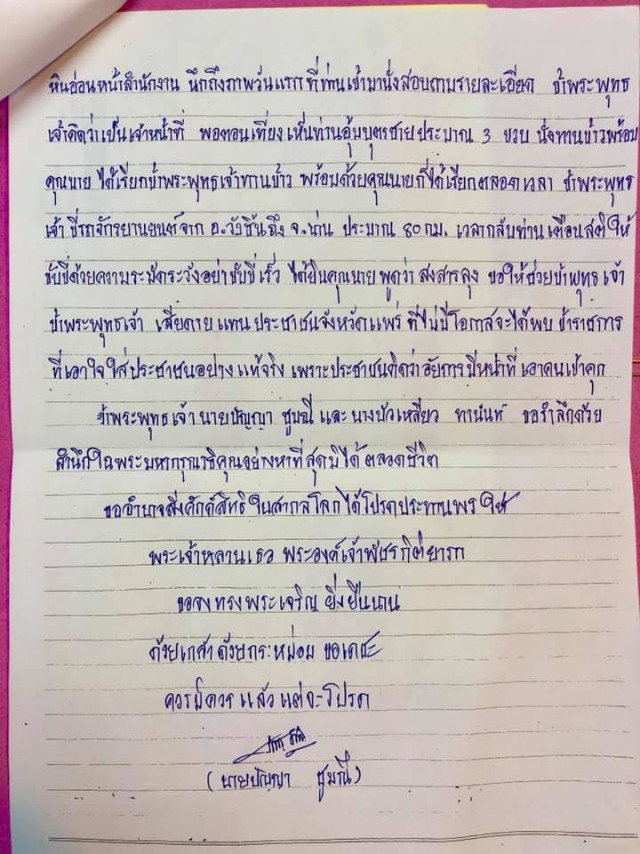 หินอ่อนหน้าสำนักงาน นึกถึงภาพวันแรกที่ท่านเข้ามานั่งสอบถามรายละเอียด ข้าพระพุทธ
เจ้าคิดว่าเป็นเจ้าหน้าที่ พอตอนเที่ยงเห็นท่านอุ้มบุตรชายประมาณ 3 ขวบ นั่งทานข้าวพร้อม
คุณนาย ได้เรียกข้าพระพุทธเจ้าทานข้าว พร้อมด้วยคุณนายก็ได้เรียกตลอดเวลา ข้าพระพุทธ
เจ้า ขี่รถจักรยานยนต์จาก อ.วังชิ้นถึง จ.น่าน ประมาณ 80 กม. เวลากลับท่านเตือนสติให้
ขับขี่ด้วยความระมัดระวังอย่าขับขี่เร็ว ได้ยินคุณนายพูดว่า สงสารลุง ขอให้ช่วยข้าพุทธเจ้า
ข้าพระพุทธเจ้า เสียดาย แทนประชาชนจังหวัดแพร่ ที่ไม่มีโอกาสจะได้พบ ข้าราชการ
ที่เอาใจใส่ประชาชนอย่างแท้จริง เพราะประชาชนคิดว่าอัยการมีหน้าที่เอาคนเข้าคุก
ข้าพระพุทธเจ้า นายปัญญา ชูมณี และ นางบัวเหลียว ทานันท์ ขอรำลึกด้วย
สำนึกในพระมหากรุณาธิคุณอย่างหาที่สุดมิได้ ตลอดชีวิต
ขออำนาจสิ่งศักดิ์สิทธิ์ในสากลโลกได้โปรดประทานพรให้
พระเจ้าหลานเธอ พระองค์เจ้าพัชรกิติยาภา
ขอจงทรงพระเจริญยิ่งยืนนาน
ด้วยเกศาด้วยกระหม่อม ขอเดชะ
ควรมิควร แล้วแต่จะโปรด
(นายปัญญา ชูมณี)